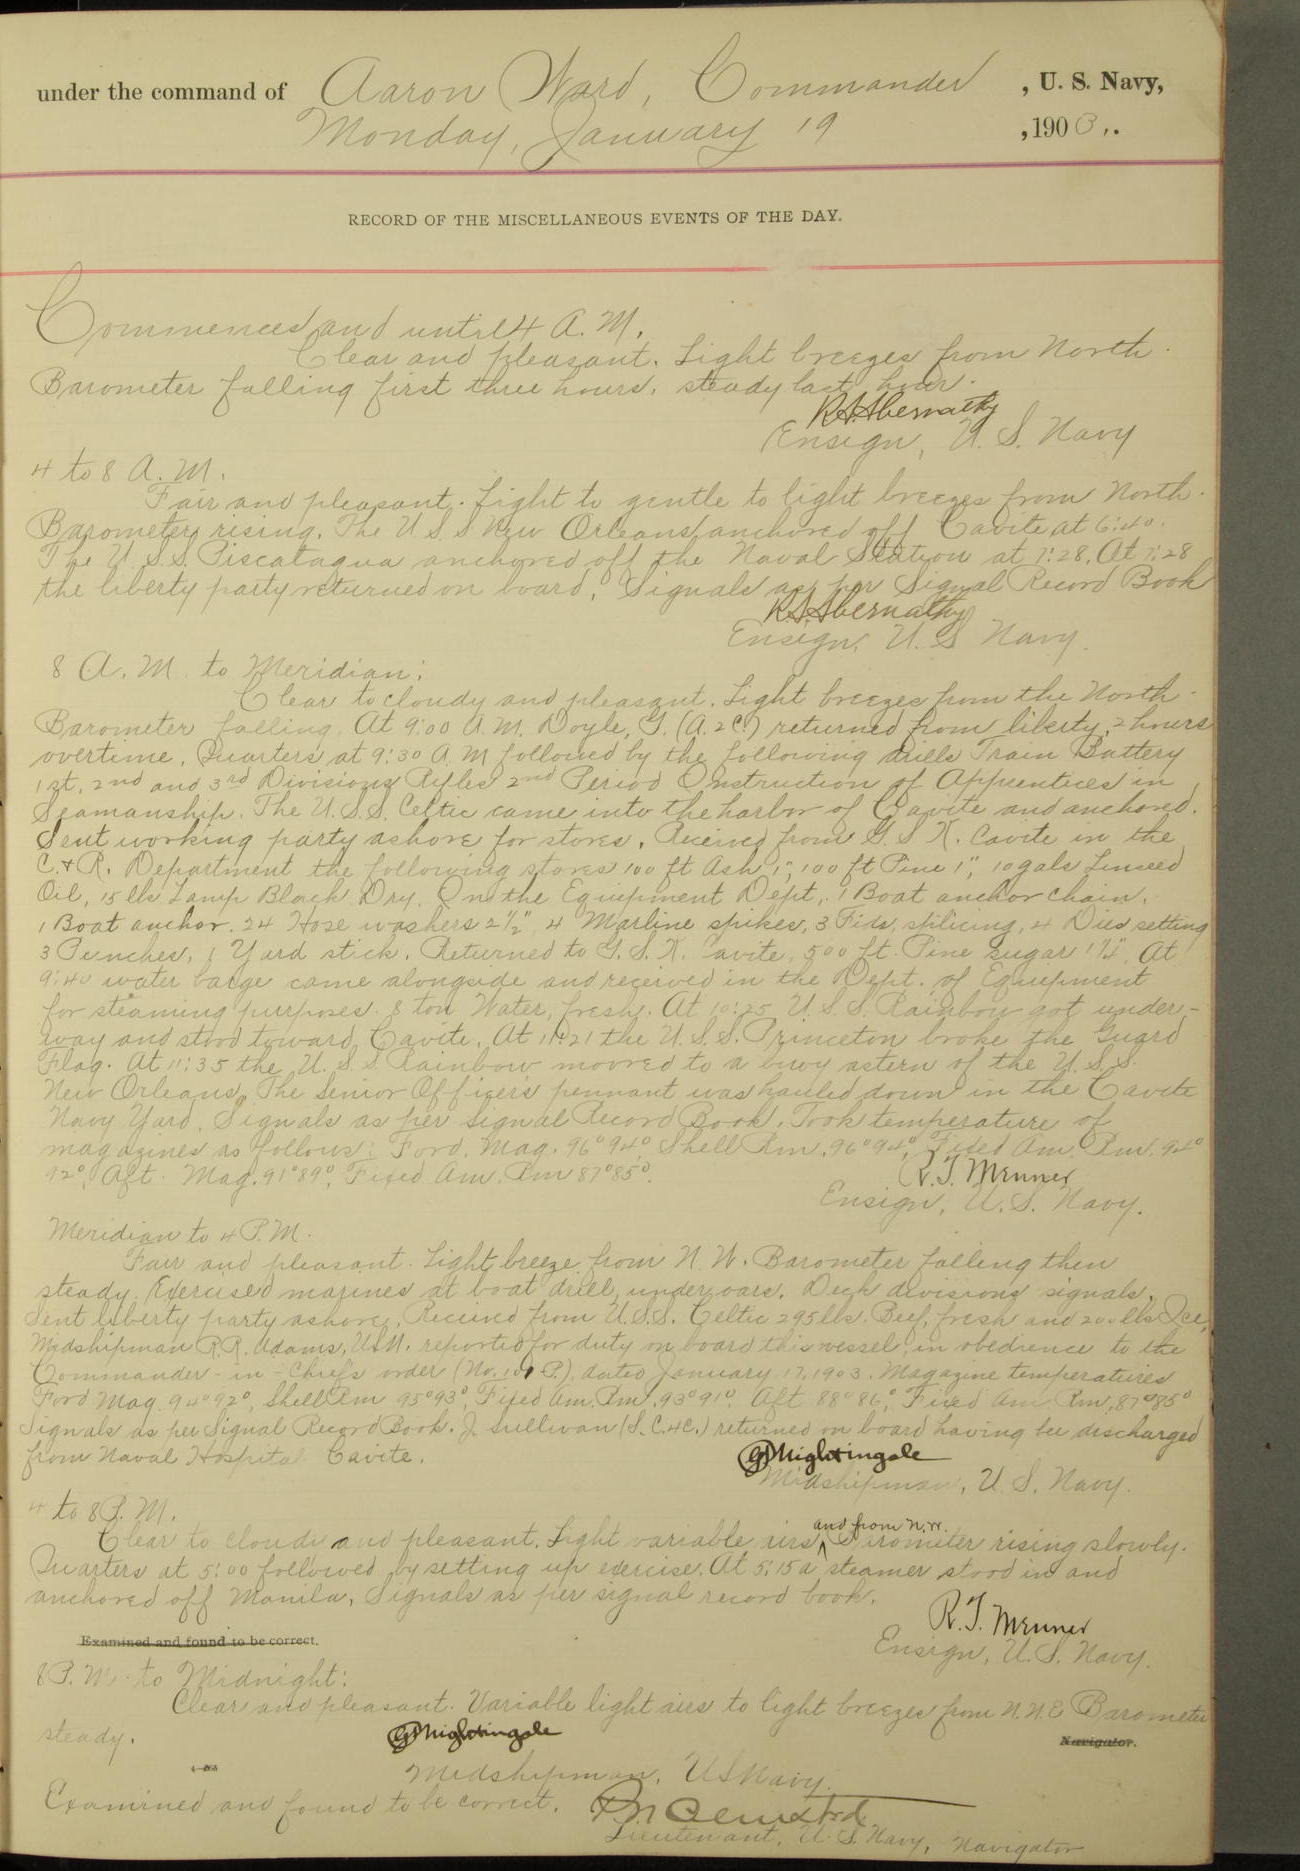 under the command of Aaron Ward, Commander , U. S. Navy,
Monday, January 19 , 1903.
RECORD OF THE MISCELLANEOUS EVENTS OF THE DAY.
Commences and until 4 A. M.
Clear and pleasant. Light breezes from North.
Barometer falling first three hours, steady last hour.
R.S. Abernathy
Ensign, U. S. Navy
4 to 8 A. M.
Fair and pleasant. Light to gentle to light breezes from North.
Barometer rising. The U. S. S New Orleans anchored off Cavite at 6:40.
The U. S.S. Piscataqua anchored off the Naval Station at 7:28. At 7:28
the liberty party returned on board. Signals as per Signal Record Book
R.S. Abernathy
Ensign, U. S Navy.
8 A. M. to Meridian:
Clear to cloudy and pleasant. Light breezes from the North.
Barometer falling. At 9:00 A.M. Doyle, G. (A. 2 C.) returned from liberty, 2 hours
overtime. Quarters at 9:30 A. M followed by the following drills Train Battery
1st, 2nd and 3rd Divisions Rifles 2nd Period Instruction of Apprentices in
Seamanship. The U. S.S. Celtic came into the harbor of Cavite and anchored.
Sent working party ashore for stores. Received from G. S. K. Cavite in the
C. & R. Department the following stores 100 ft Ash 1", 100 ft Pine 1", 10 gals Linseed
Oil, 15 lbs Lamp Black Dry. In the Equipment Dept., 1 Boat anchor chain,
1 Boat anchor. 24 Hose washers 2½", 4 Marline spikes, 3 Fids, splicing, 4 Dies setting
3 Punches, 1 Yard stick. Returned to G. S. K. Cavite, 500 ft. Pine sugar 1¼". At
9:40 water barge came alongside and received in the Dept. of Equipment
for steaming purposes 8 ton Water, fresh. At 10:25 U. S. S. Rainbow got under-
way and stood toward Cavite. At 11:21 the U. S.S. Princeton broke the Guard
Flag. At 11:35 the U. S. S. Rainbow moored to a buoy astern of the U. S.S.
New Orleans. The Senior Officer's pennant was hauled down in the Cavite
Navy Yard. Signals as per Signal Record Book. Took temperature of
magazines as follows: Ford. Mag. 96° 94°, Shell Rm. 96° 94°, Fixed Am. Rm. 94°
92°, Aft. Mag. 91° 89°, Fixed Am. Rm 87° 85°.
R. T. Menner
Ensign, U. S. Navy.
Meridian to 4 P.M.
Fair and pleasant. Light breeze from N. W. Barometer falling then
steady. Exercised marines at boat drill, under oars. Deck divisions signals.
Sent liberty party ashore. Received from U.S.S. Celtic 295 lbs. Beef, fresh and 200 lbs Ice,
Midshipman R. R. Adams, U.S.N. reported for duty on board this vessel, in obedience to the
Commander-in-Chief's order (No. 101 P.), dated January 17, 1903. Magazine temperatures
Ford Mag. 94° 92°, Shell Rm 95° 93°, Fixed Am. Rm. 93° 91°. Aft 88° 86°, Fixed Am Rm. 87° 85°
Signals as per Signal Record Book. J. Sullivan (S. C. 4 C.) returned on board having be discharged
from Naval Hospital Cavite.
Nightingale
Midshipman, U. S. Navy.
4 to 8 P. M.
Clear to cloudy and pleasant. Light variable airs and from N.W. Barometer rising slowly.
Quarters at 5:00 followed by setting up exercise. At 5:15 a steamer stood in and
anchored off Manila. Signals as per signal record book.
R. T. Menner
Examined and found to be correct.
Ensign, U. S. Navy.
8 P. M. to Midnight:
Clear and pleasant. Variable light airs to light breezes from N. N. E Barometer
steady.
Navigator.
Nightingale
Midshipman, U S Navy.
Examined and found to be correct.
Lieutenant, U. S. Navy, Navigator